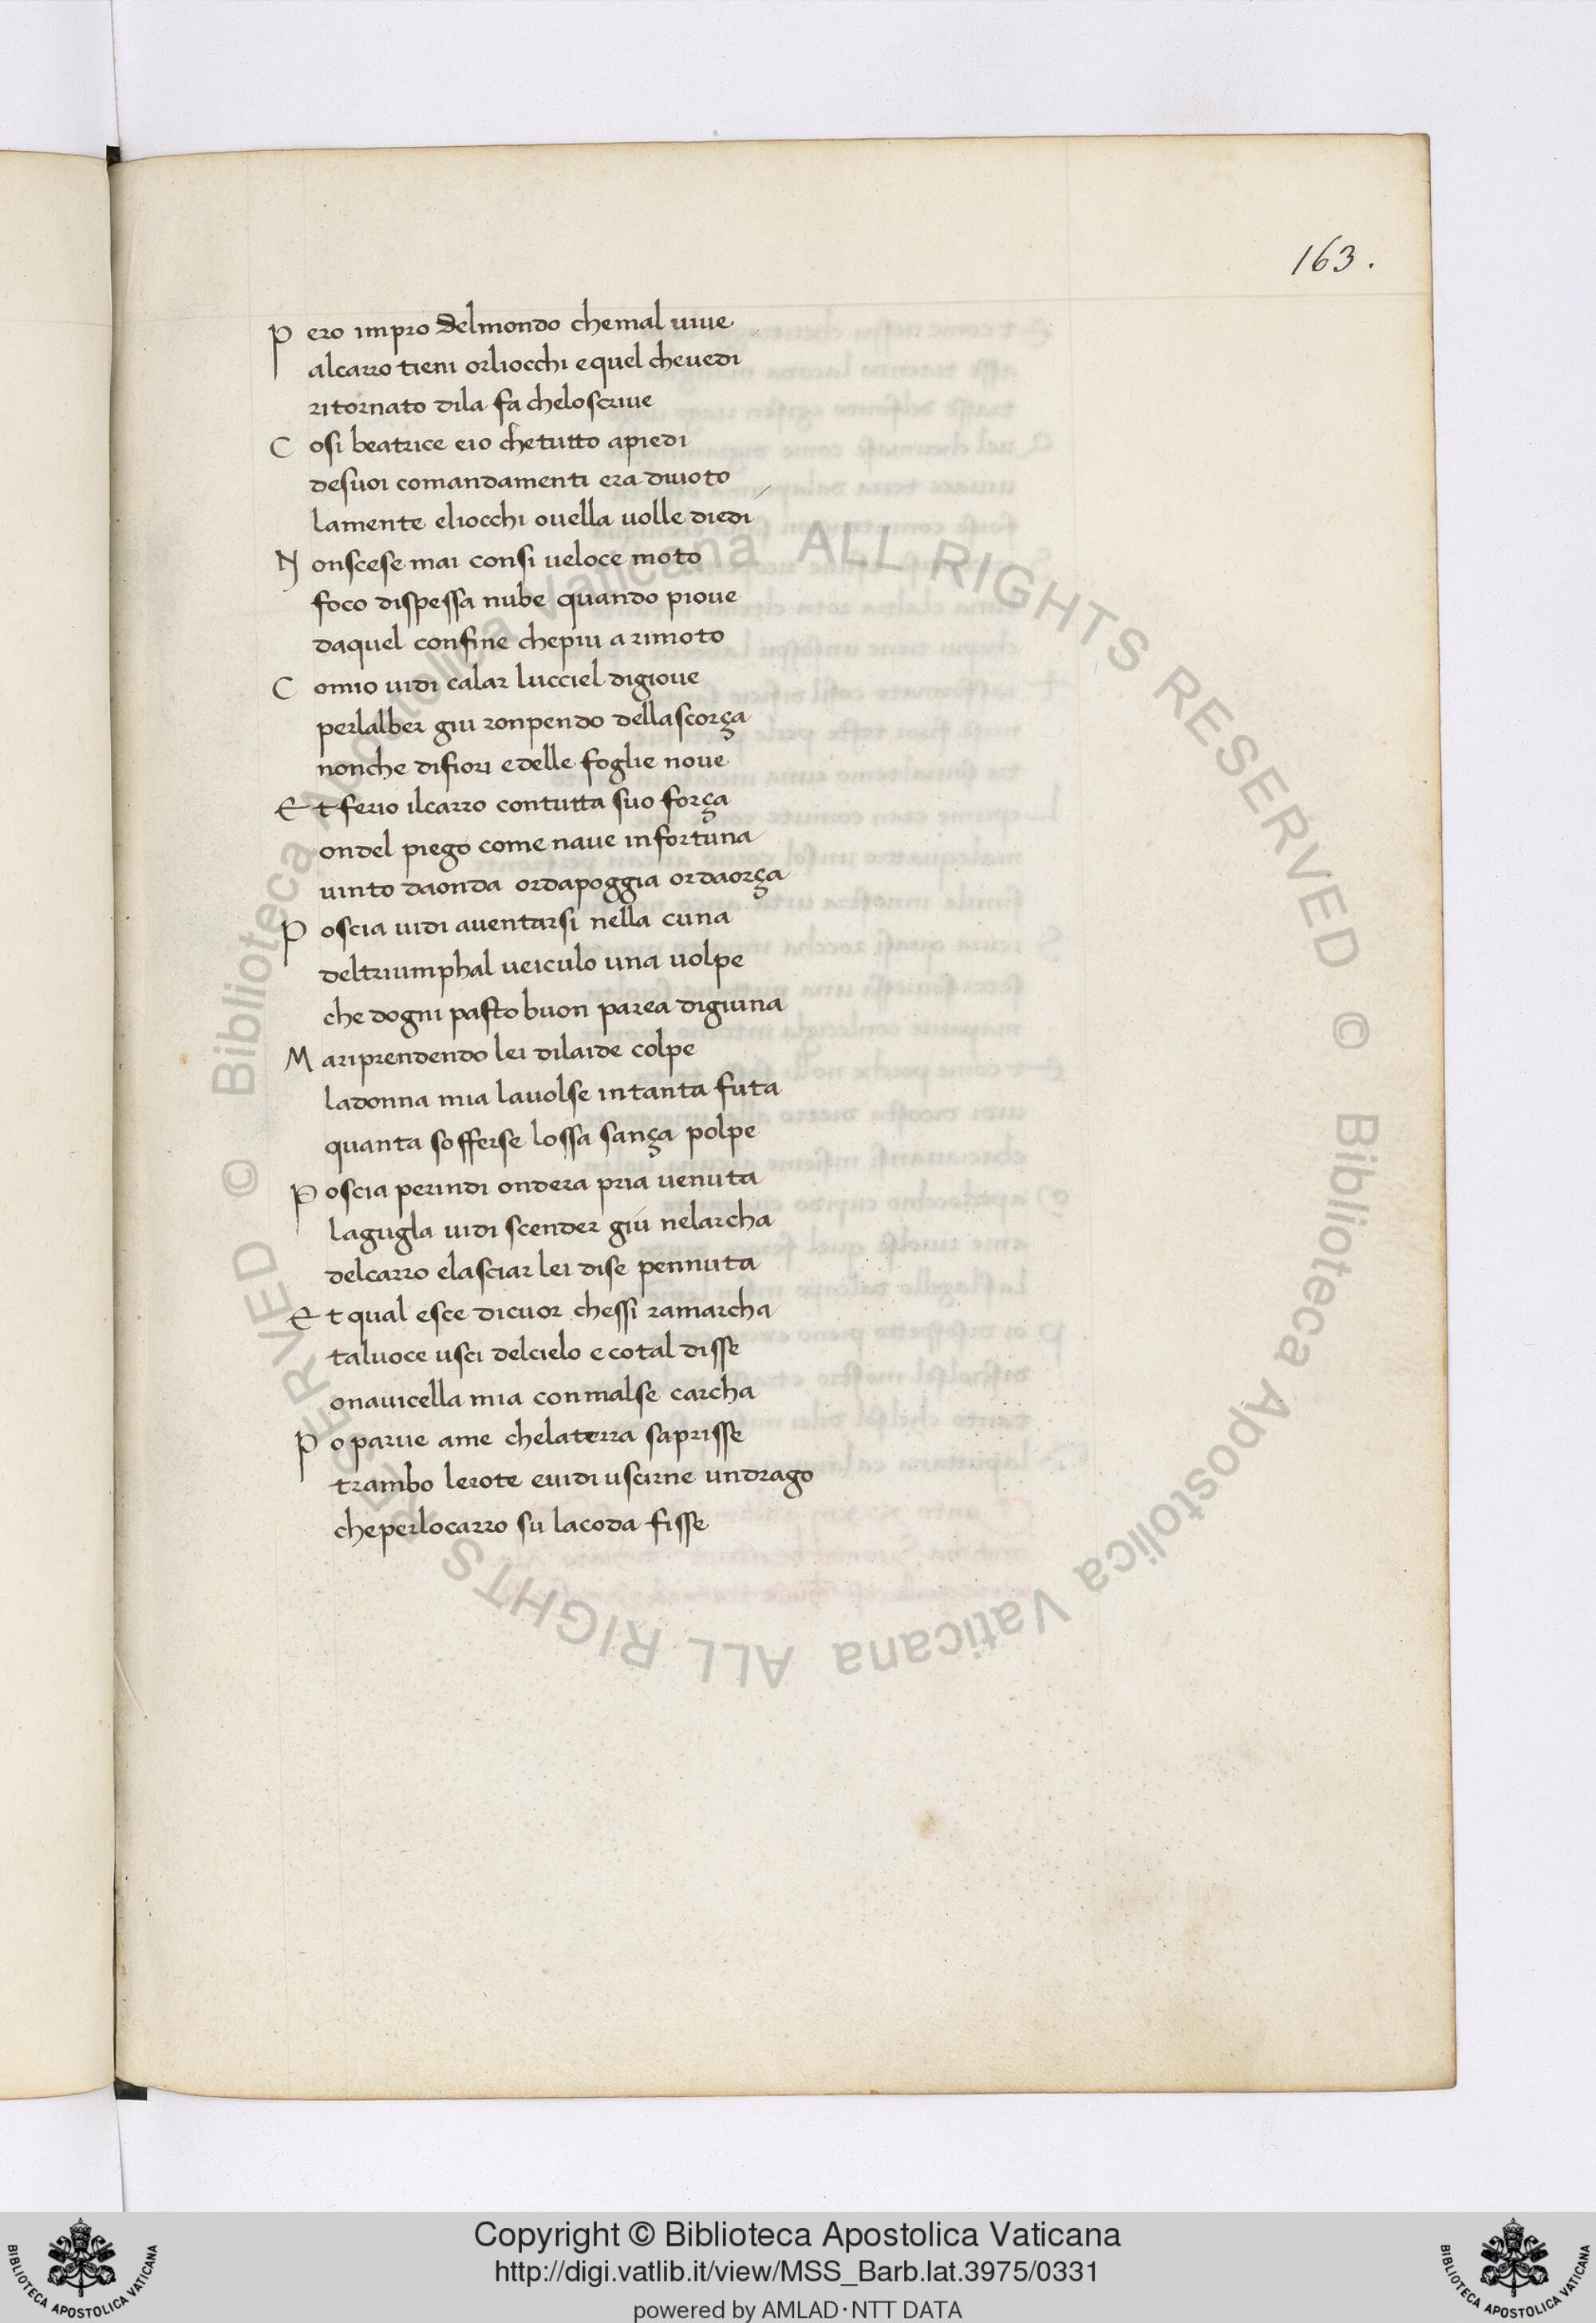 163.
P ero impro delmondo chemal uiue
alcarro tieni orliocchi equel cheuedi
ritornato dila fa cheloscriue
C osi beatrice eio chetutto apiedi
desuoi comandamenti era diuoto
lamente eliocchi ouella uolle diedi
N onscese mai consi ueloce moto
foco dispessa nube quando pioue
daquel confine chepiu arimoto
C omio uidi calar lucciel digioue
perlalber giu ronpendo dellascorça
nonche difiori edelle foglie noue
E t ferio ilcarro contutta suo força
ondel piego come naue infortuna
uinto daonda ordapoggia ordaorça
P oscia uidi auentarsi nella cuna
deltriumphal ueiculo una uolpe
che dogni pasto buon parea digiuna
M ariprendendo lei dilaide colpe
ladonna mia lauolse intanta futa
quanta sofferse lossa sança polpe
P oscia perindi ondera pria uenuta
lagugla uidi scender giú nelarcha
delcarro elasciar lei dise pennuta
E t qual esce dicuor chessi ramarcha
taluoce usci delcielo e cotal disse
onauicella mia conmalse carcha
P o parue ame chelaterra saprisse
trambo lerote euidi uscirne undrago
cheperlocarro su lacoda fisse
© Biblioteca Apostolica Vaticana ALL RIGHTS RESERVED © Biblioteca Apostolica Vaticana ALL RIGHTS RESERVED
Copyright © Biblioteca Apostolica Vaticana
http://digi.vatlib.it/view/MSS_Barb.lat.3975/0331
powered by AMLAD·NTT DATA
BIBLIOTECA APOSTOLICA VATICANA
BIBLIOTECA APOSTOLICA VATICANA